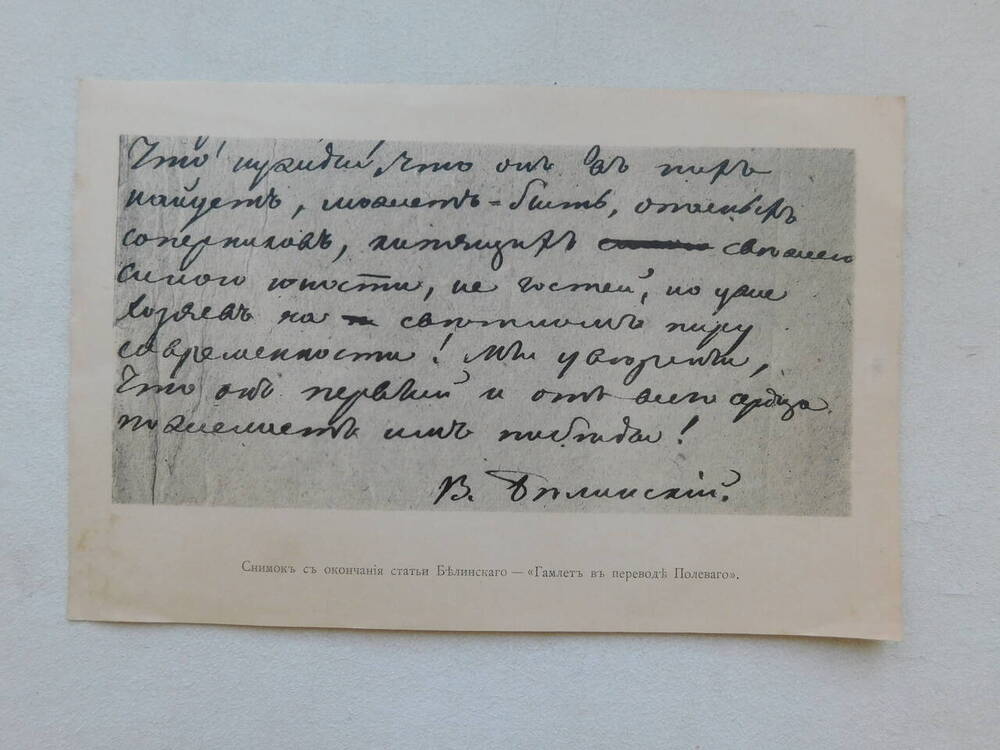 Что нужды, что онъ въ нихъ
найдетъ, можетъ-быть, опасныхъ
соперниковъ, кипящихъ свѣжею
силою юности, не гостей, но уже
хозяевъ на свѣтломъ пиру
современности! Мы увѣрены,
что онъ первый и отъ всего сердца
пожелаетъ имъ побѣды!
В. Бѣлинскій.
Снимокъ съ окончанія статьи Бѣлинскаго — «Гамлетъ въ переводѣ Полеваго».